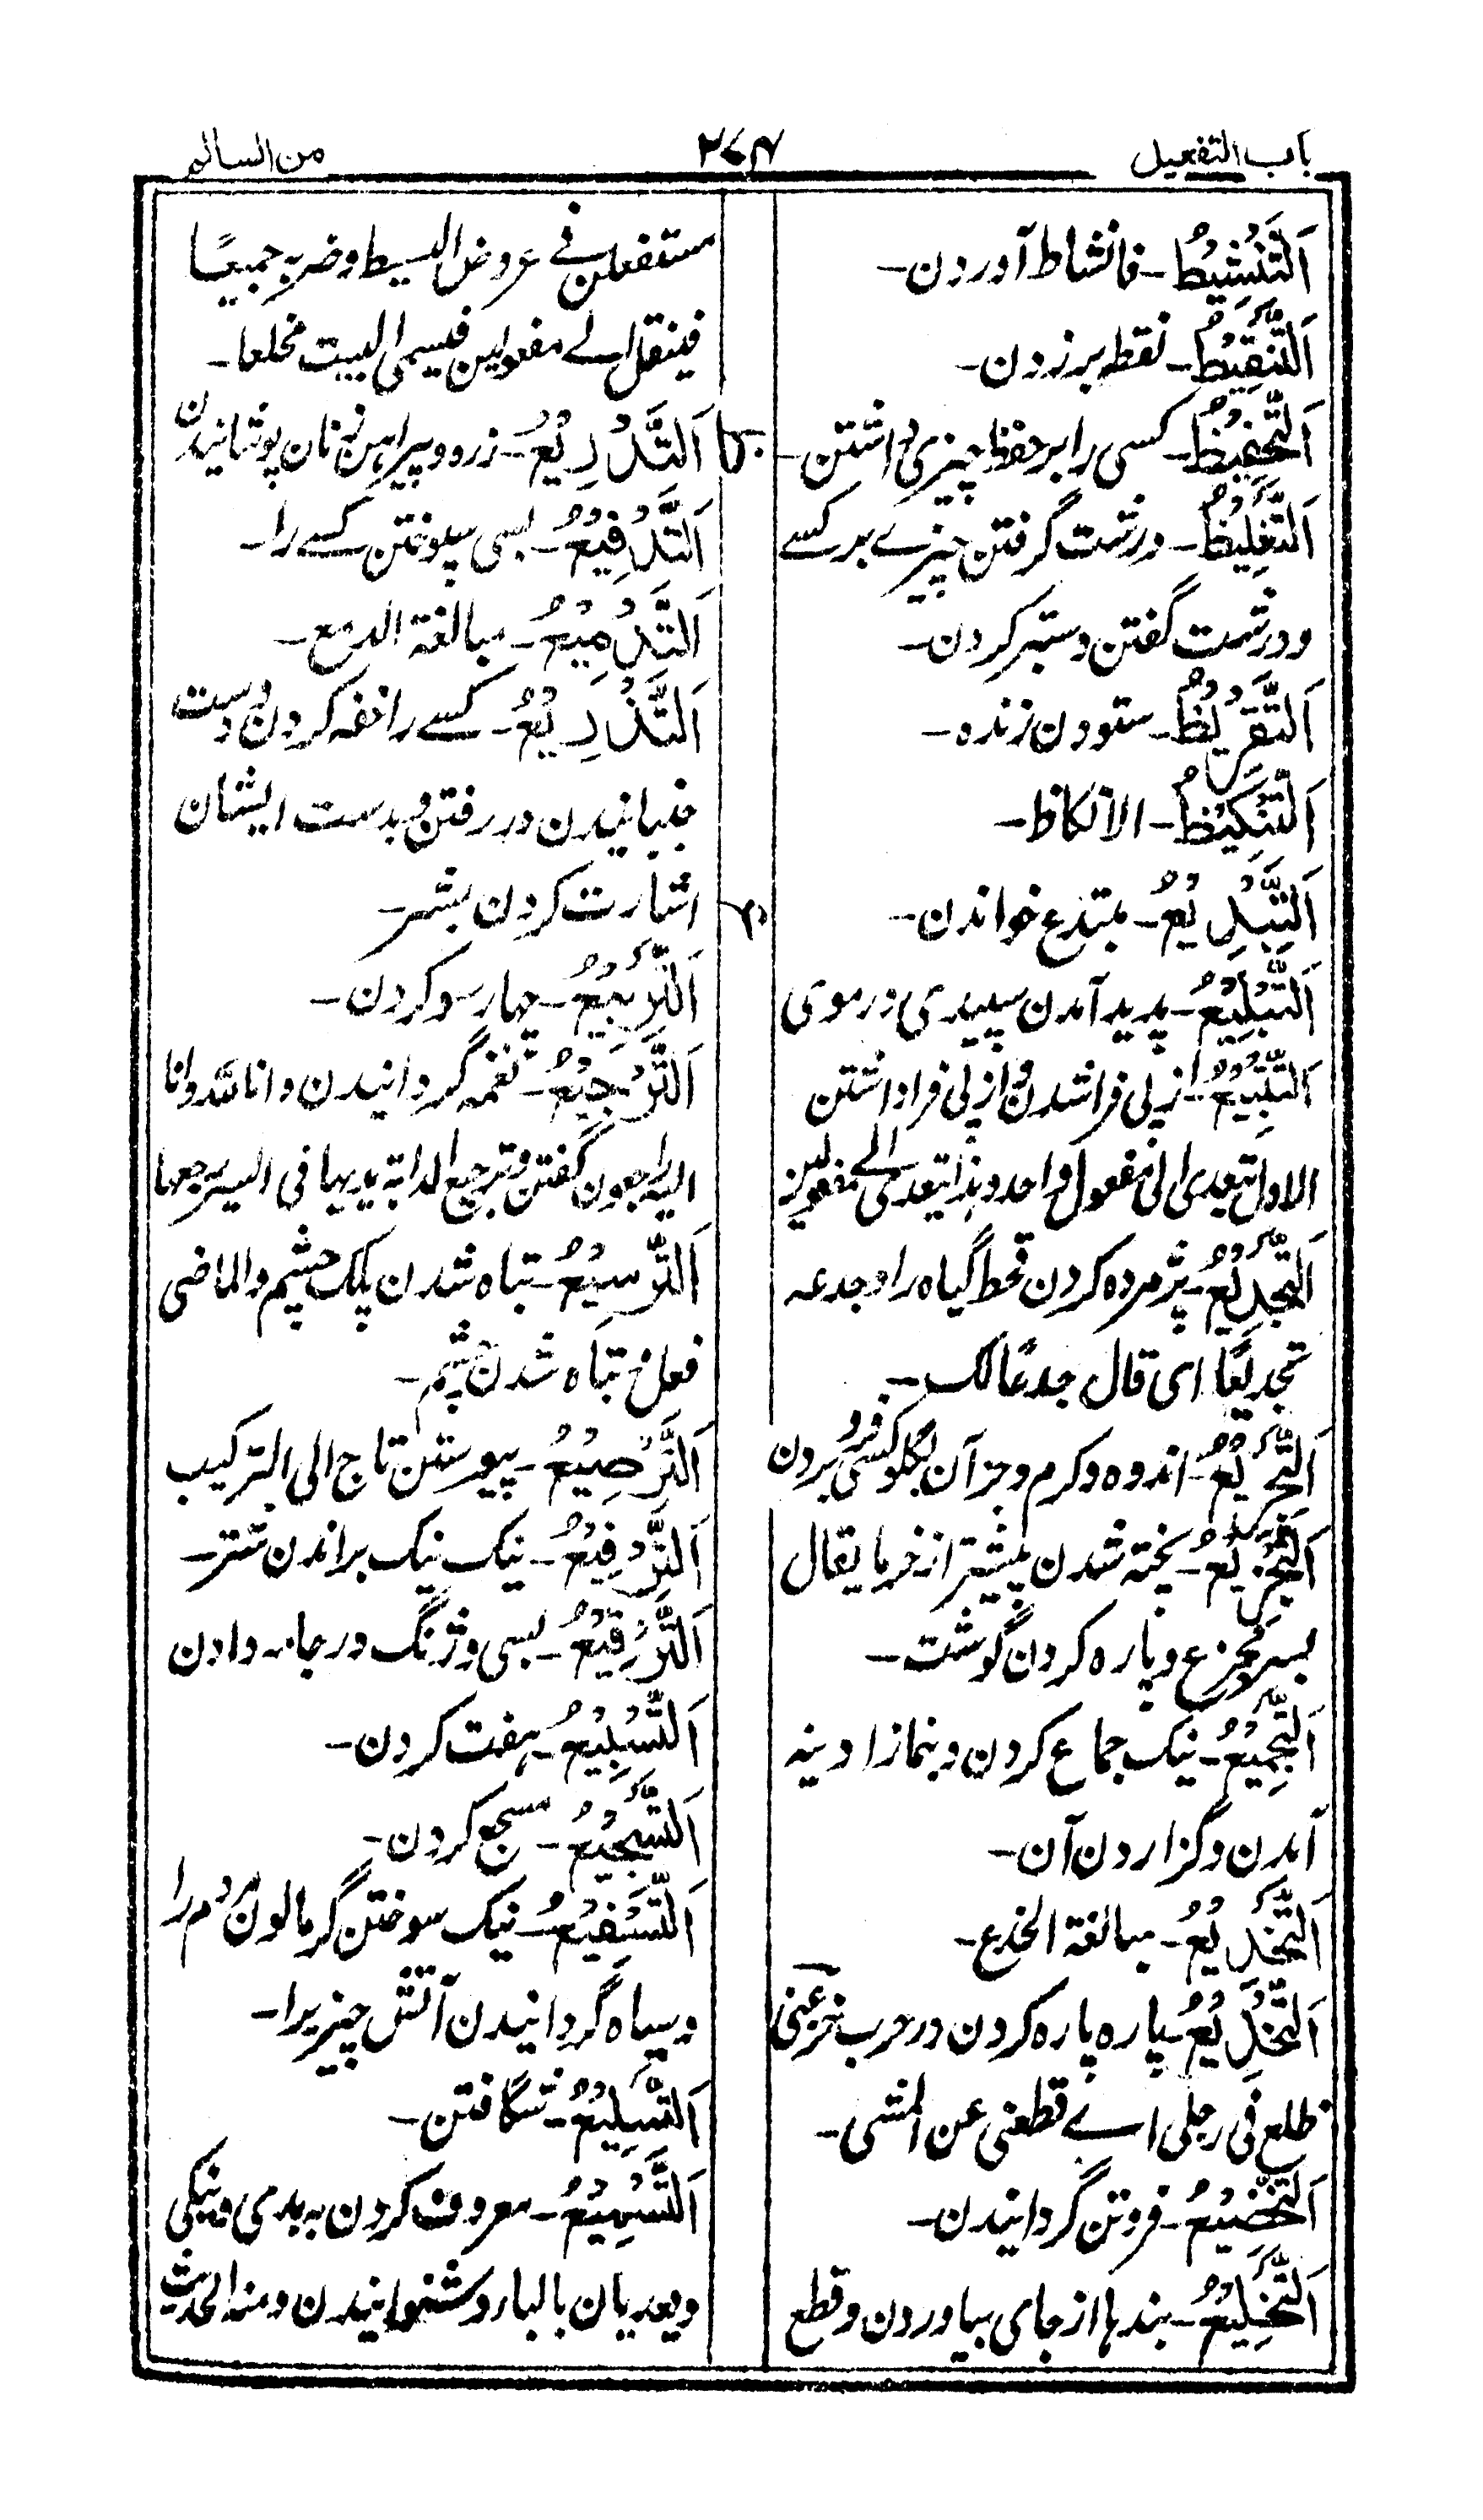 باب التفعیل
۲۷۴
من السالم
اَلتَّنْشِیْطُ ـ فا نشاط آوردن ـ
اَلتَّنْقِیْطُ ـ نقطه بر زدن ـ
اَلتَّحْفِیْظُ ـ کسی را بر حفظ چیزی داشتن ـ
اَلتَّغْلِیْظُ ـ درشت گرفتن چیزے بر کسے
و درشت گفتن و ستبر کردن ـ
اَلتَّقْرِیْظُ ـ ستودن زنده ـ
اَلتَّنْکِیْظُ ـ الانکاظ ـ
اَلتَّبْدِیْعُ ـ مبتدع خواندن ـ
اَلتَّبْلِیْعُ ـ پدید آمدن سپیدی در موی
اَلتَّتْبِیْعُ ـ از پی فرا شدن و از پی فرا داشتن
الاول یتعدی الی مفعول واحد و هذا یتعدی الی مفعولین
اَلتَّجْدِیْعُ ـ پژمرده کردن قحط گیاه را و جدعه
تجدیعًا ای قال جدعًا لک ـ
اَلتَّجْرِیْعُ ـ اندوه و کرم و جز آن بگلو کسی فرو بردن
اَلتَّجْزِیْعُ ـ پخته شدن بیشتر از خرما یقال
بسر مجزع و پاره کردن گوشت ـ
اَلتَّجْمِیْعُ ـ نیک جماع کردن و بنماز ادینه
آمدن و گزاردن آن ـ
اَلتَّخْدِیْعُ ـ مبالغة الخدع ـ
اَلتَّخْذِیْعُ ـ پاره پاره کردن در حرب خزعنی
ظلع فی رجلی اے قطعنی عن المشی ـ
اَلتَّخْضِیْعُ ـ فروتن گردانیدن ـ
اَلتَّخْلِیْعُ ـ بندها از جای بیاوردن و قطع
مستفعلن فی عروض البسیط و ضربه جمیعًا
فینقل الے مفعولین فیسمی البیت مخلعا ـ
اَلتَّدْرِیْعُ ـ زره و پیراهن زنان پوشانیدن
اَلتَّدْفِیْعُ ـ بسی سپوختن کسے را ـ
اَلتَّدْمِیْعُ ـ مبالغة الدمع ـ
اَلتَّذْرِیْعُ ـ کسے را خفه کردن و دست
جنبانیدن در رفتن و بدست ایشان
اشارت کردن بشر ـ
اَلتَّرْبِیْعُ ـ چهار سو کردن ـ
اَلتَّرْجِیْعُ ـ نغمه گردانیدن و انا لله و انا
الیه راجعون گفتن و ترجیع الدابة یدیها فی السیر رجعها
اَلتَّرْسِیْعُ ـ تباه شدن پلک چشم و الماضی
فعل تباه شدن چشم ـ
اَلتَّرْصِیْعُ ـ پیوستن تاج الی الترکیب
اَلتَّرْفِیْعُ ـ نیک نیک براندن شتر ـ
اَلتَّرْقِیْعُ ـ بسی وژنگ در جامه دادن
اَلتَّسْبِیْعُ ـ هفت کردن ـ
اَلتَّسْجِیْعُ ـ مسجع کردن ـ
اَلتَّسْفِیْعُ ـ نیک سوختن گرما لون مردم را
و سیاه گردانیدن آتش چیزیرا ـ
اَلتَّسْلِیْعُ ـ شگافتن ـ
اَلتَّسْمِیْعُ ـ معروف کردن به بدی و نیکی
و یعدیان بالباء و شنوانیدن و منه الحدیث